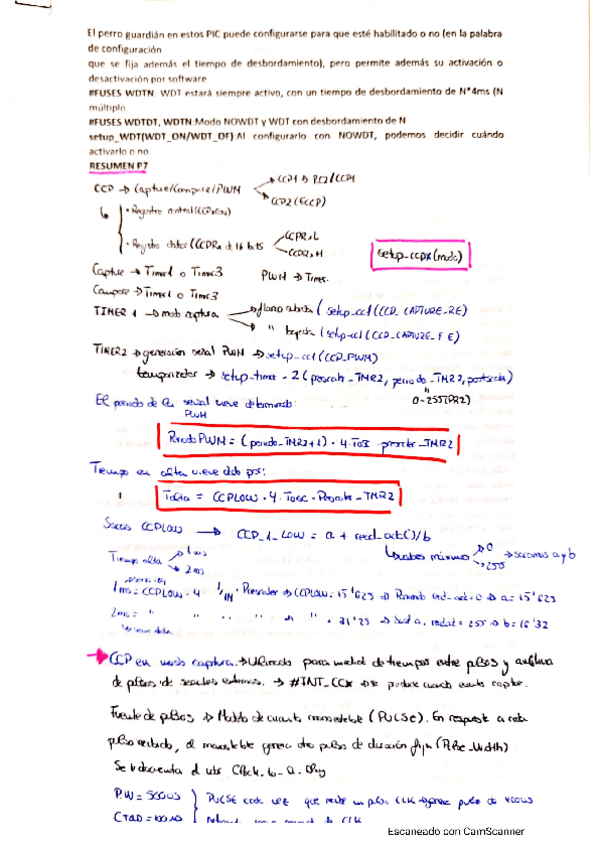 El perro guardián en estos PIC puede configurarse para que esté habilitado o no (en la palabra
de configuración
que se fija además el tiempo de desbordamiento), pero permite además su activación o
desactivación por software
#FUSES WDTN: WDT estará siempre activo, con un tiempo de desbordamiento de N*4ms (N
múltiplo
#FUSES WDTDT, WDTN:Modo NOWDT y WDT con desbordamiento de N
setup_WDT(WDT_ON/WDT_OF):Al configurarlo con NOWDT, podemos decidir cuándo
activarlo o no.
RESUMEN P7
CCP → Capture/Compare/PWM
CCP1 → RC2/CCP1
CCP2 (ECCP)
• Registro control (CCPxCON)
• Registro datos (CCPRx de 16 bits
CCPRxL
CCPRxH
setup_CCPX(modo)
Capture → Timer1 o Timer3
PWM → Timer
Compare → Timer1 o Timer3
TIMER 1 → modo captura
flanco subida (setup_cc1(CCP_CAPTURE_RE)
" bajada (setup_cc1(CCP_CAPTURE_FE)
TIMER2 → generación señal PWM → setup_cc1(CCP_PWM)
temporizador → setup_timer_2(prescaler_TMR2, periodo_TMR2, postscala)
0-255(PR2)
El periodo de la señal viene determinado:
PWM
Periodo PWM = (periodo_TMR2+1) · 4 · Tosc · prescaler_TMR2
Tiempo en alta viene dado por:
Talta = CCPLOW · 4 · Tosc · Prescaler_TMR2
CCPLOW → CCP_1_LOW = a + read_adc()/b
valores máximos
0
255
→ sacamos a y b
Tiempo alta
1ms
2ms
1ms = CCPLOW · 4 · Prescaler → CCPLOW = 15'625 → a = 15'625
2ms = " " " " " " 31'25 → b = 16'32
CCP en modo captura → Utilizado para medida de tiempos entre pulsos y
de señales externas. → #INT_CCX → se produce cuando evento captura.
Fuente de pulsos → Modelo de circuito monoestable (PULSE). En respuesta a cada
pulso recibido, el monoestable genera otro pulso de duración fija (Pulse_Width)
P.W = 500us
PULSE cada vez que recibe un pulso CLK genera pulso de
Escaneado con CamScanner